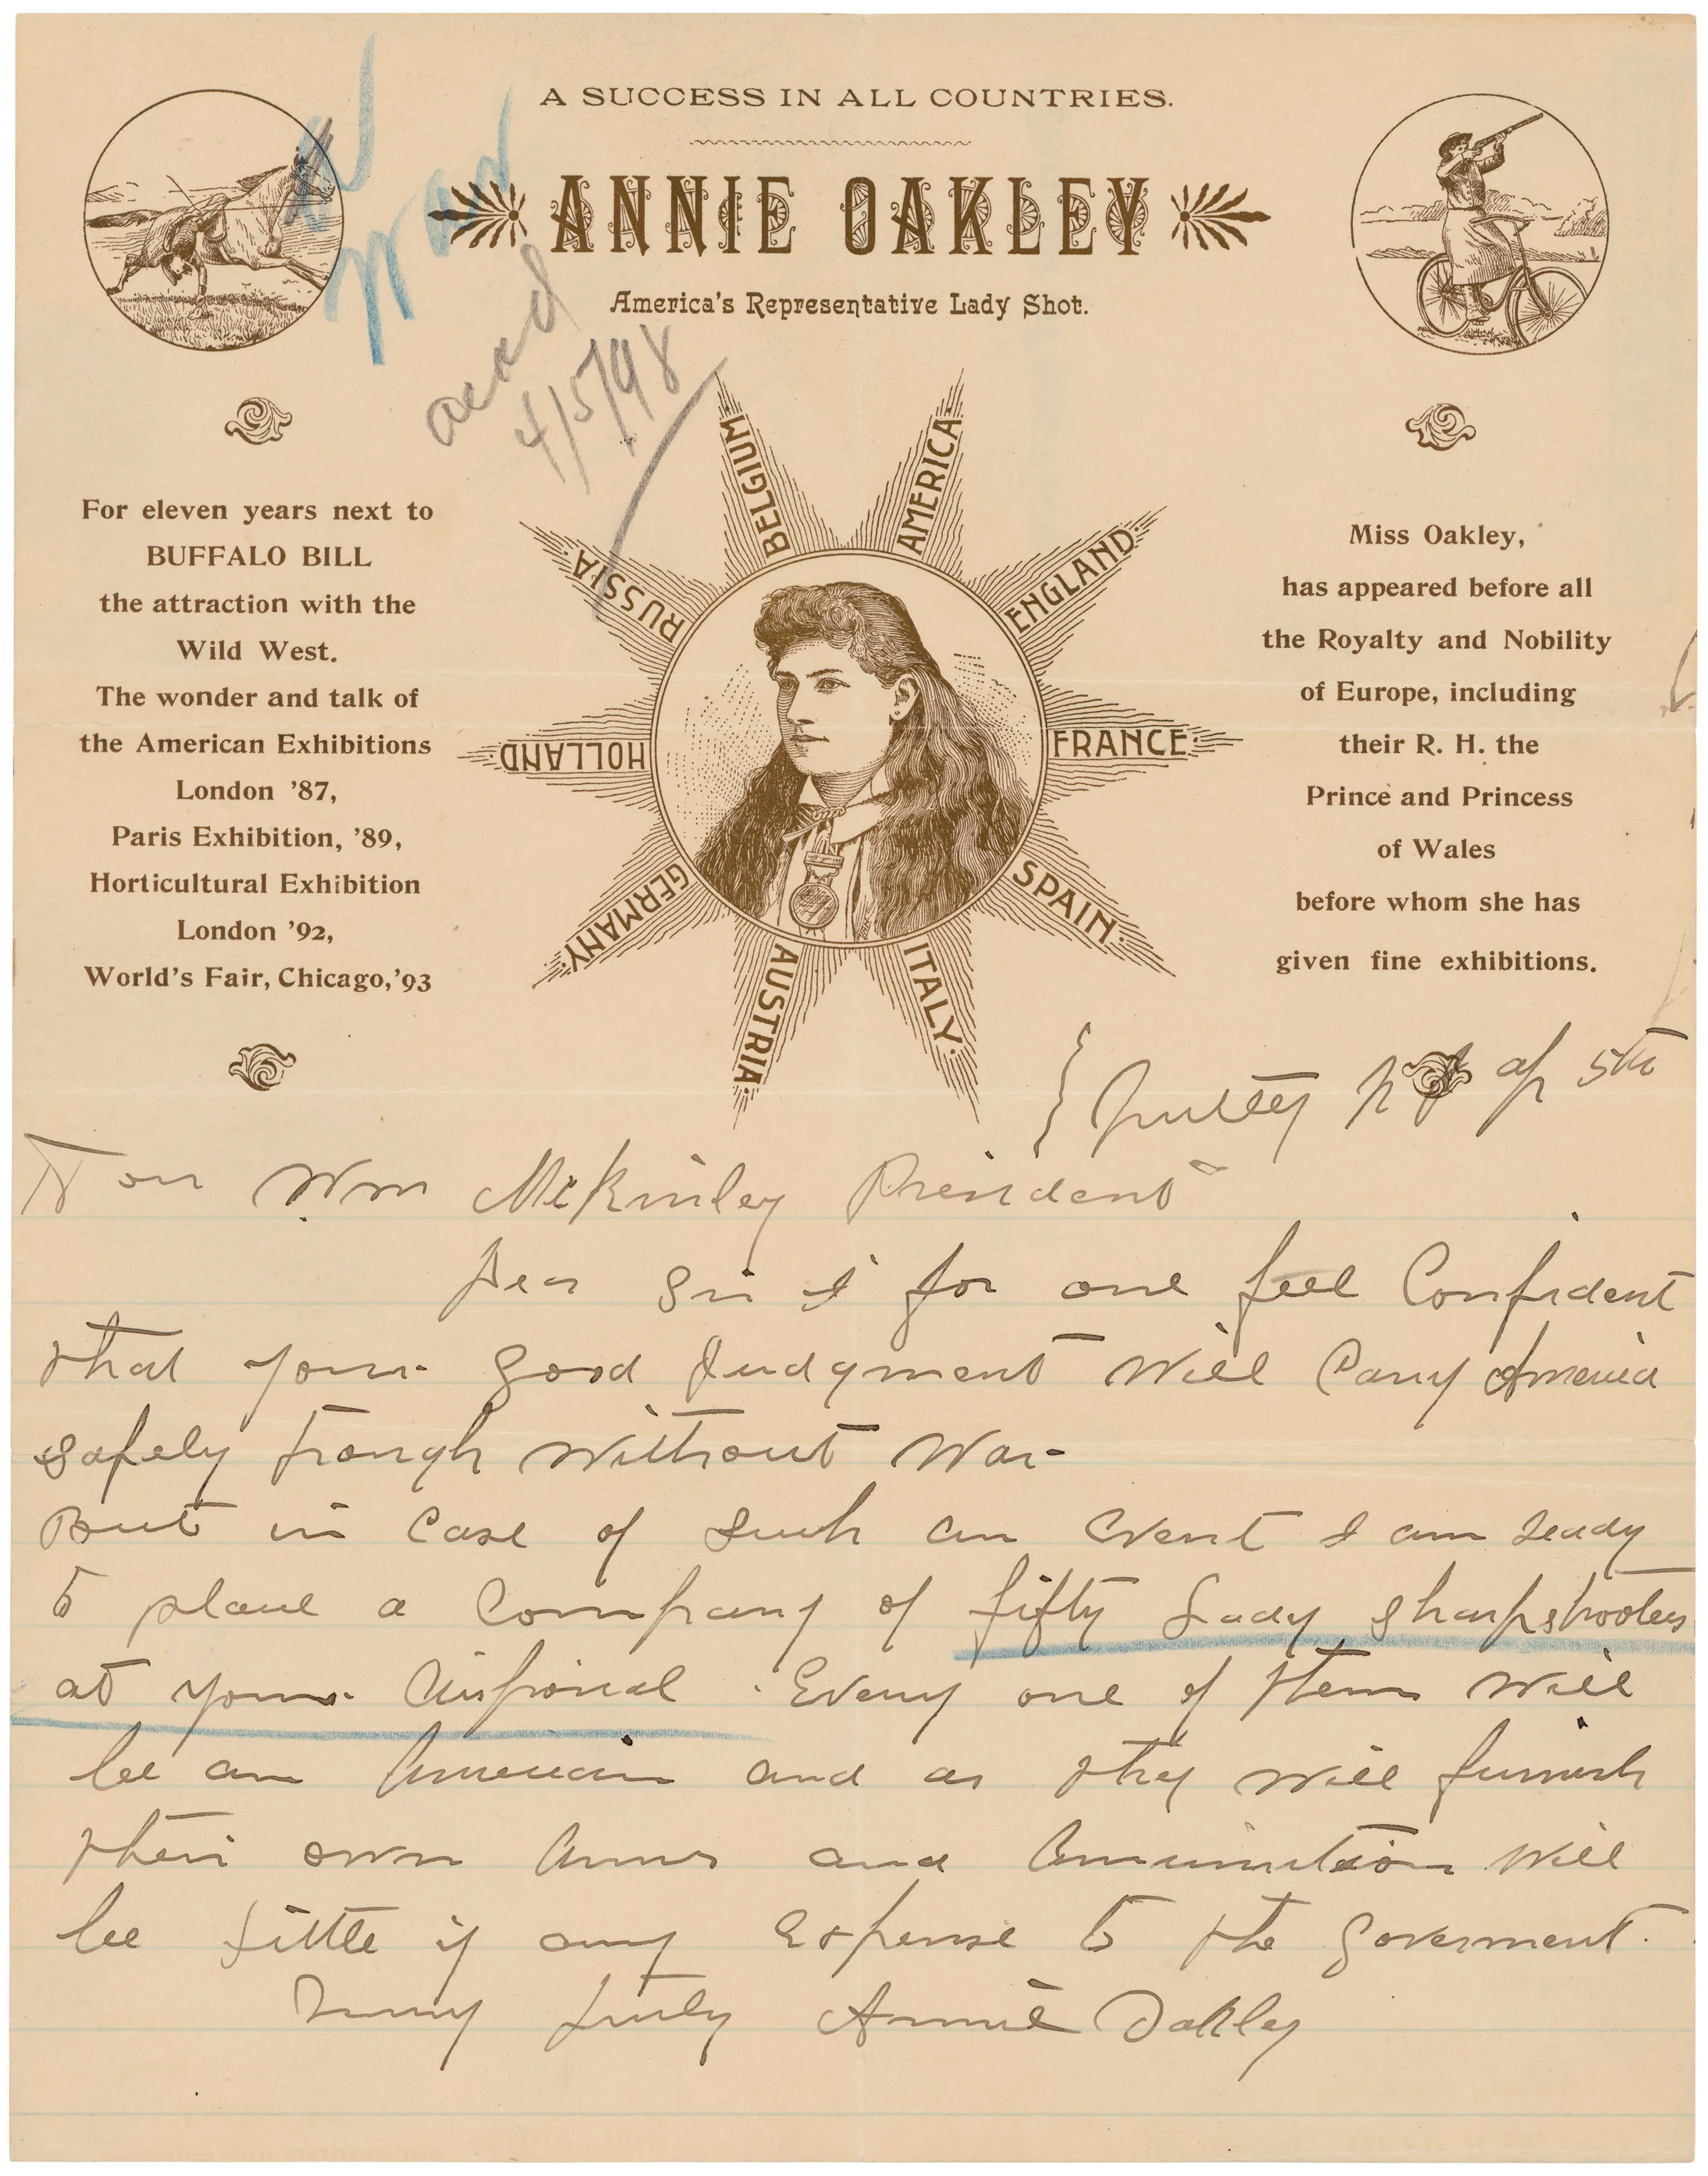 A SUCCESS IN ALL COUNTRIES.
ANNIE OAKLEY
America's Representative Lady Shot.
War
ackd
4/5/98
For eleven years next to
BUFFALO BILL
the attraction with the
Wild West.
The wonder and talk of
the American Exhibitions
London '87,
Paris Exhibition, '89,
Horticultural Exhibition
London '92,
World's Fair, Chicago, '93
BELGIUM
AMERICA
ENGLAND
FRANCE
SPAIN
ITALY
AUSTRIA
GERMANY
HOLLAND
RUSSIA
Miss Oakley,
has appeared before all
the Royalty and Nobility
of Europe, including
their R. H. the
Prince and Princess
of Wales
before whom she has
given fine exhibitions.
Nutley NJ ap 5th
Hon Wm McKinley President
Dear Sir I for one feel Confident
that your good Judgment will Carry America
safely trough without War-
But in Case of such an Event I am ready
to place a Company of fifty Lady sharpshooters
at your disposal. Every one of them will
be an American and as they will furnish
their own Arms and Amunition will
be little if any expense to the goverment.
Very truly Annie Oakley